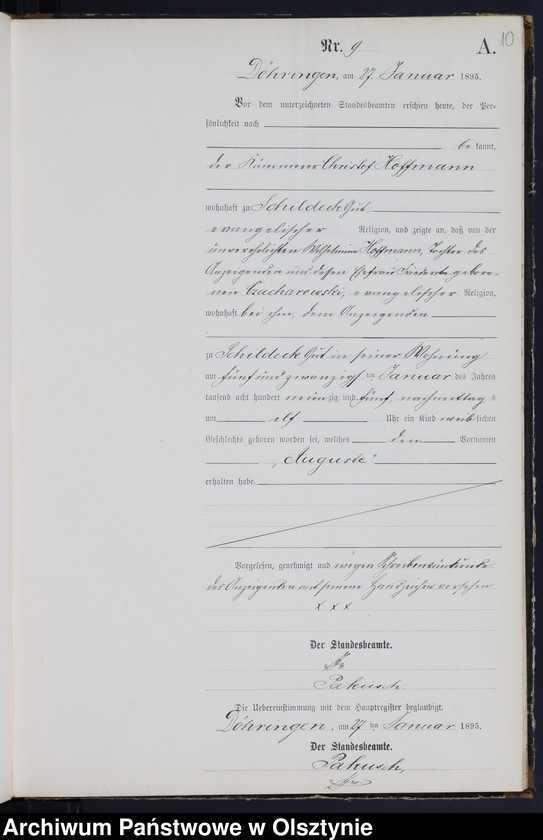 10
Nr. 9.
A.
Döhringen, am 27. Januar 1895.
Vor dem unterzeichneten Standesbeamten erschien heute, der Per-
sönlichkeit nach
be kannt,
der Kämmerer Christof Hoffmann
wohnhaft zu Schildeck Gut,
evangelischer Religion, und zeigte an, daß von der
unverehelichten Wilhelmine Hoffmann, Tochter des
Anzeigenden und dessen Ehefrau Friederike gebore-
nen Czacharowski, evangelischer Religion,
wohnhaft bei ihm, dem Anzeigenden
zu Schildeck Gut in seiner Wohnung
am fünf und zwanzigsten Januar des Jahres
tausend acht hundert neunzig und fünf, nachmittags
um elf Uhr ein Kind weiblichen
Geschlechts geboren worden sei, welches den Vornamen
„Auguste“
erhalten habe.
Vorgelesen, genehmigt und wegen Schreibensunkunde
des Anzeigenden mit seinem Handzeichen versehen
x x x
Der Standesbeamte.
Pakusch
Die Uebereinstimmung mit dem Hauptregister beglaubigt.
Döhringen, am 27 ten Januar 1895.
Der Standesbeamte.
Pakusch,
Archiwum Państwowe w Olsztynie